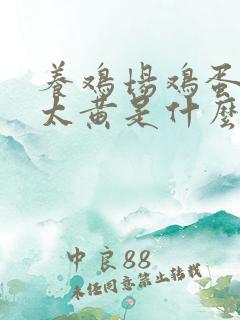 养鸡场鸡蛋
太黄是什麼
中良88
未经同意禁止转载